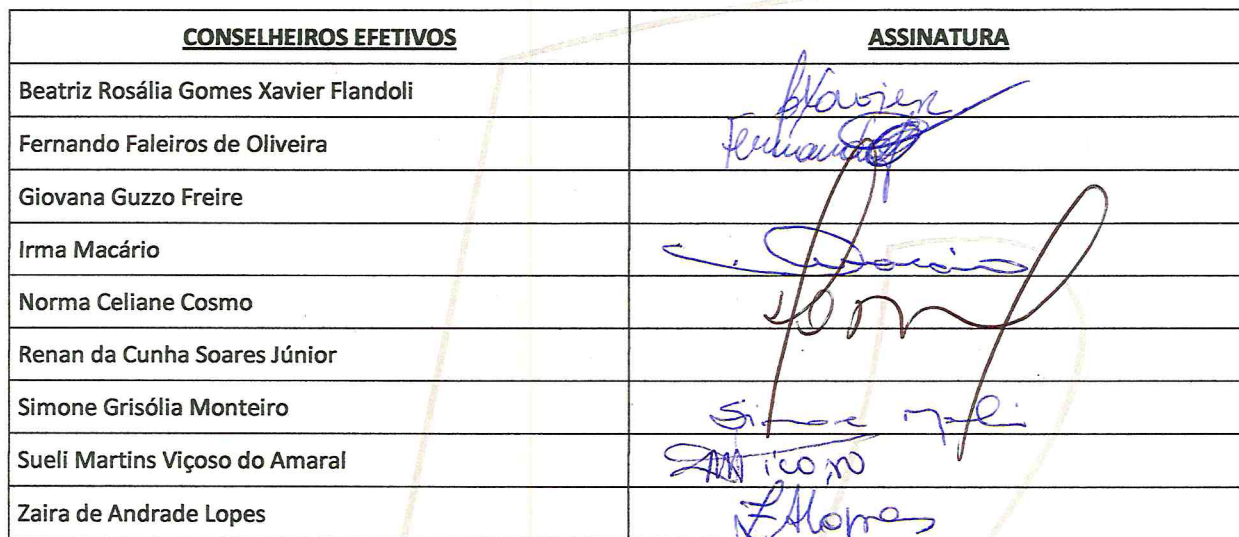 CONSELHEIROS EFETIVOS ASSINATURA
Beatriz Rosália Gomes Xavier Flandoli BXavier
Fernando Faleiros de Oliveira Fernando
Giovana Guzzo Freire
Irma Macário
Norma Celiane Cosmo
Renan da Cunha Soares Júnior
Simone Grisólia Monteiro Simone
Sueli Martins Viçoso do Amaral
Zaira de Andrade Lopes ZALopes